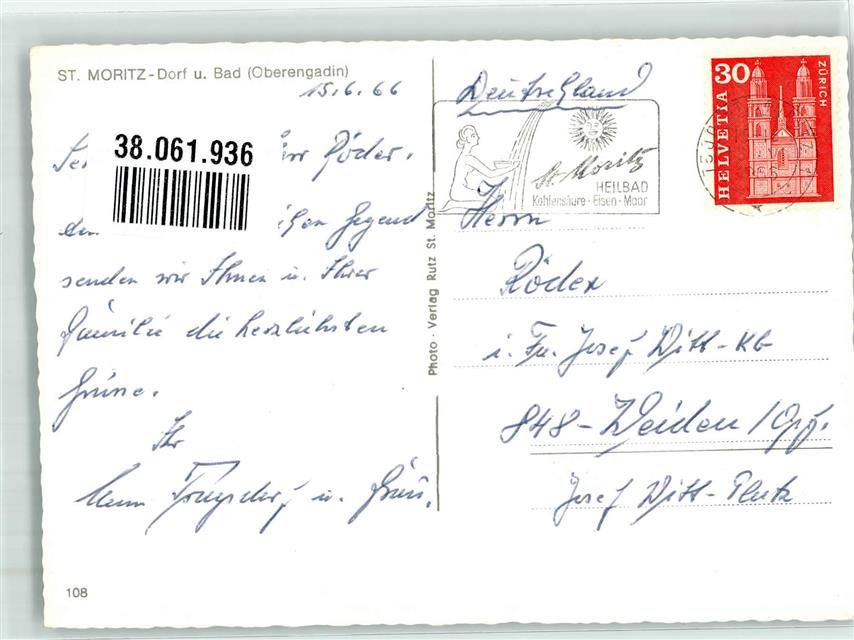 ST. MORITZ-Dorf u. Bad (Oberengadin)
15.6.66
38.061.936
Röder.
Gegend
senden wir Ihnen u. Ihrer
Familie die herzlichsten
Grüsse.
Ihr
u. Frau.
108
Photo-Verlag Rutz St. Moritz
Deutschland
St. Moritz
HEILBAD
Kohlensäure · Eisen · Moor
HELVETIA
30
ZÜRICH
Herrn
Röder
i. Fa. Josef Witt-KG
848-Weiden/Opf.
Josef Witt-Platz